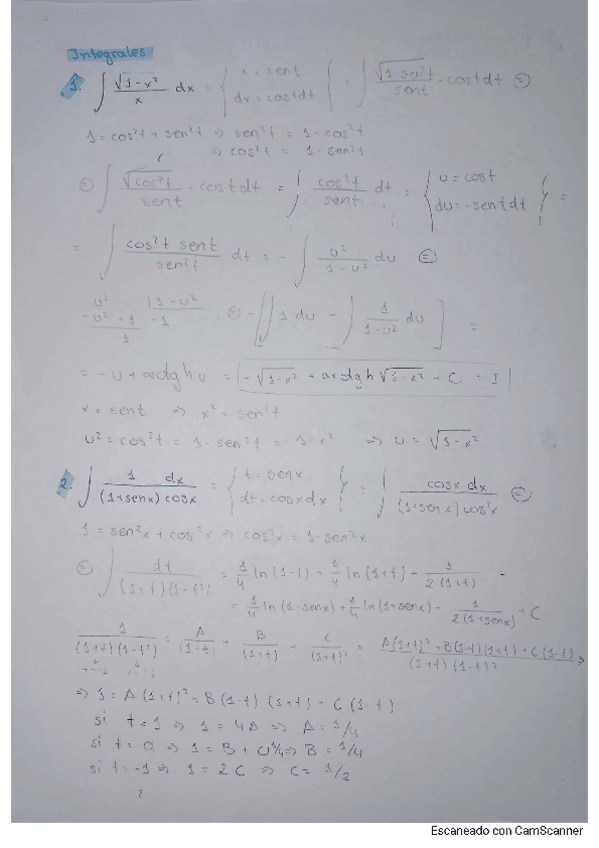 Integrales
1. ∫ √(1-x²)/x dx = { x = sent = ∫ √(1-sen²t)/sent · cost dt =
dx = cost dt }
1 = cos²t + sen²t ⇒ sen²t = 1 - cos²t
⇒ cos²t = 1 - sen²t
= ∫ √(cos²t)/sent · cost dt = ∫ cos²t/sent dt = { u = cost
du = -sent dt } =
= ∫ cos²t sent/sen²t dt = - ∫ u²/(1-u²) du =
u² |1-u²
-u²+1 -1
1
= -[∫ 1 du - ∫ 1/(1-u²) du] =
= -u + arctgh u = -√(1-x²) + arctgh √(1-x²) + C = I
x = sent ⇒ x² = sen²t
u² = cos²t = 1 - sen²t = 1 - x² ⇒ u = √(1-x²)
2. ∫ 1 dx/((1+senx) cosx) = { t = senx = ∫ cosx dx/((1+senx) cos²x) =
dt = cosx dx }
1 = sen²x + cos²x ⇒ cos²x = 1 - sen²x
= ∫ dt/((1+t)(1-t²)) = 1/4 ln(1-t) + 1/4 ln(1+t) - 1/(2(1+t)) =
= 1/4 ln(1-senx) + 1/4 ln(1+senx) - 1/(2(1+senx)) + C
1/((1+t)(1-t²)) = A/(1-t) + B/(1+t) + C/(1+t)² = A(1+t)² + B(1-t)(1+t) + C(1-t)/(1+t)(1-t)² ⇒
⇒ 1 = A(1+t)² + B(1-t)(1+t) + C(1-t)
si t = 1 ⇒ 1 = 4A ⇒ A = 1/4
si t = 0 ⇒ 1 = B + ⇒ B = 1/4
si t = -1 ⇒ 1 = 2C ⇒ C = 1/2
Escaneado con CamScanner